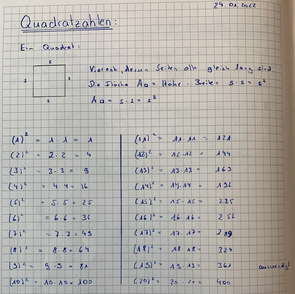 24.01.2022
Quadratzahlen:
Ein Quadrat:
s
s s
s
Viereck, dessen Seiten alle gleich lang sind
Die Fläche A□ = Höhe · Breite = s · s = s²
A□ = s · s = s²
(1)² = 1 · 1 = 1
(2)² = 2 · 2 = 4
(3)² = 3 · 3 = 9
(4)² = 4 · 4 = 16
(5)² = 5 · 5 = 25
(6)² = 6 · 6 = 36
(7)² = 7 · 7 = 49
(8)² = 8 · 8 = 64
(9)² = 9 · 9 = 81
(10)² = 10 · 10 = 100
(11)² = 11 · 11 = 121
(12)² = 12 · 12 = 144
(13)² = 13 · 13 = 169
(14)² = 14 · 14 = 196
(15)² = 15 · 15 = 225
(16)² = 16 · 16 = 256
(17)² = 17 · 17 = 289
(18)² = 18 · 18 = 324
(19)² = 19 · 19 = 361
(20)² = 20 · 20 = 400
auswendig!